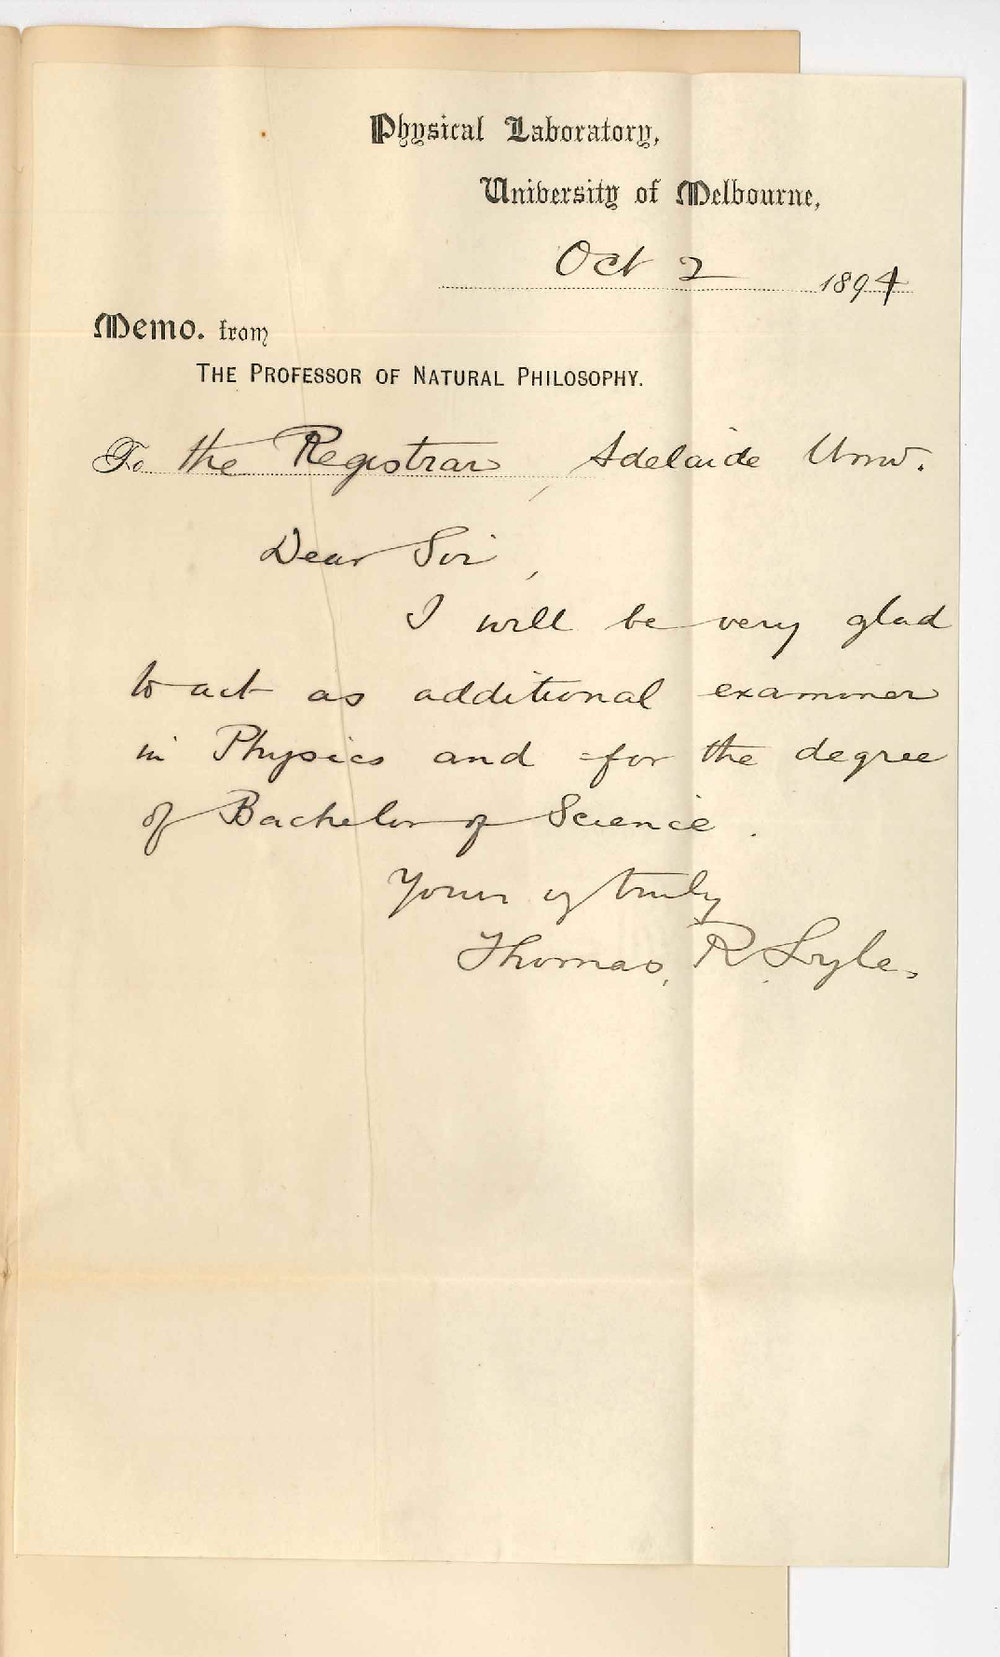 Physical Laboratory,
University of Melbourne,
Oct 2 1894
Memo. from
THE PROFESSOR OF NATURAL PHILOSOPHY.
To the Registrar, Adelaide Univ.
Dear Sir,
I will be very glad
to act as additional examiner
in Physics and for the degree
of Bachelor of Science.
Yours vy truly
Thomas, R. Lyle.